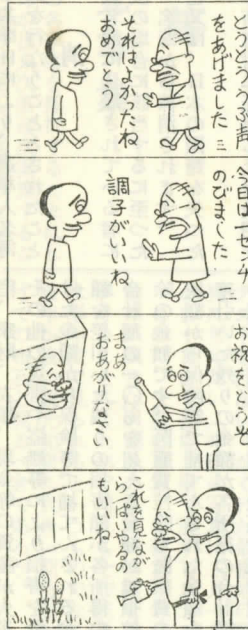 とうとううぶ声
をあげました
それはよかったね
おめでとう
今日は一センチ
のびました
調子がいいね
お祝をどうぞ
まあ
おあがりなさい
これを見なが
ら一ぱいやるの
もいいね